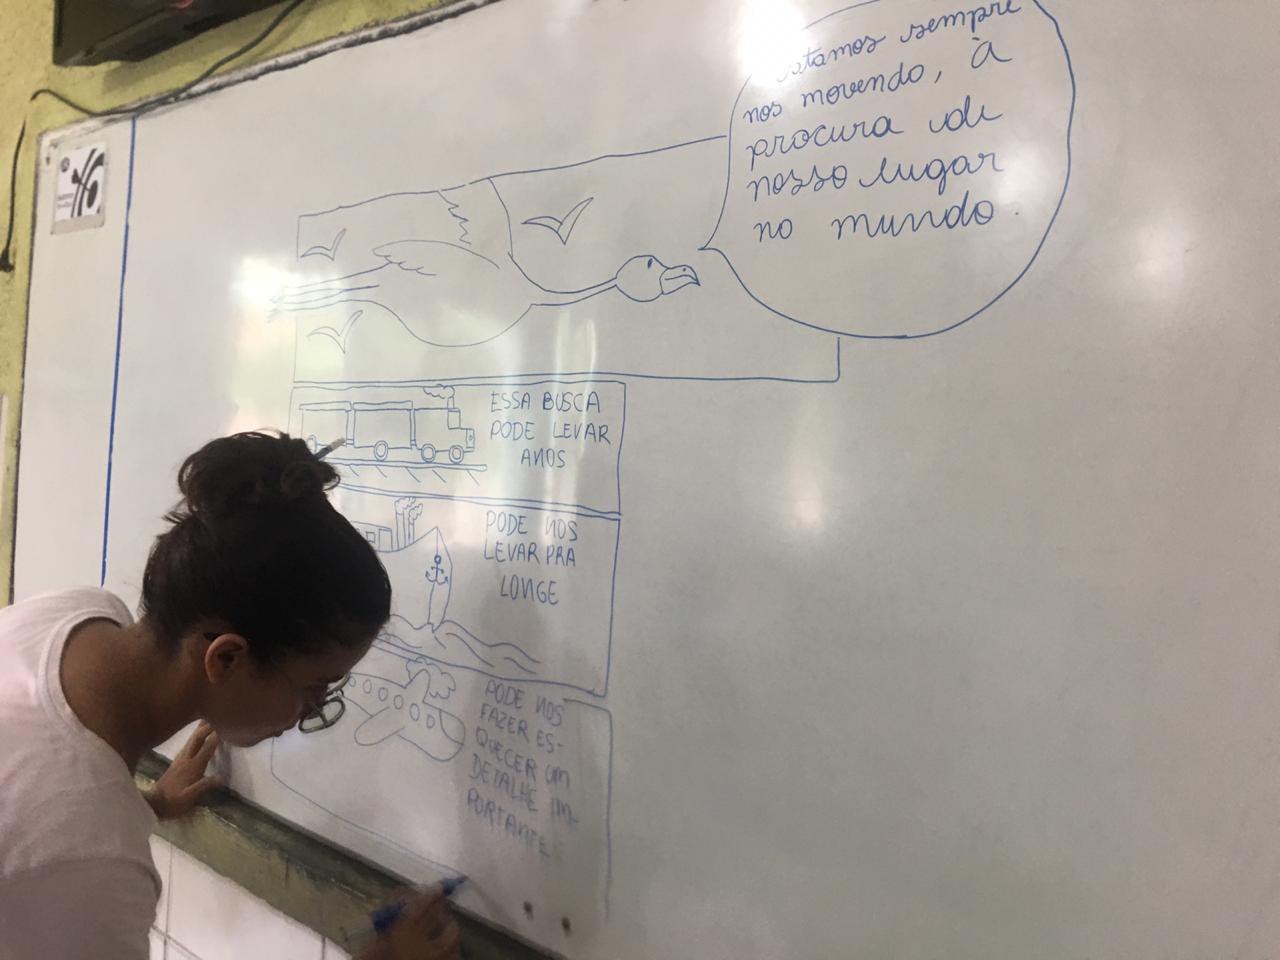 estamos sempre
nos movendo, à
procura de
nosso lugar
no mundo.
ESSA BUSCA
PODE LEVAR
ANOS
PODE NOS
LEVAR PRA
LONGE
PODE NOS
FAZER ES-
QUECER UM
DETALHE IM-
PORTANTE: